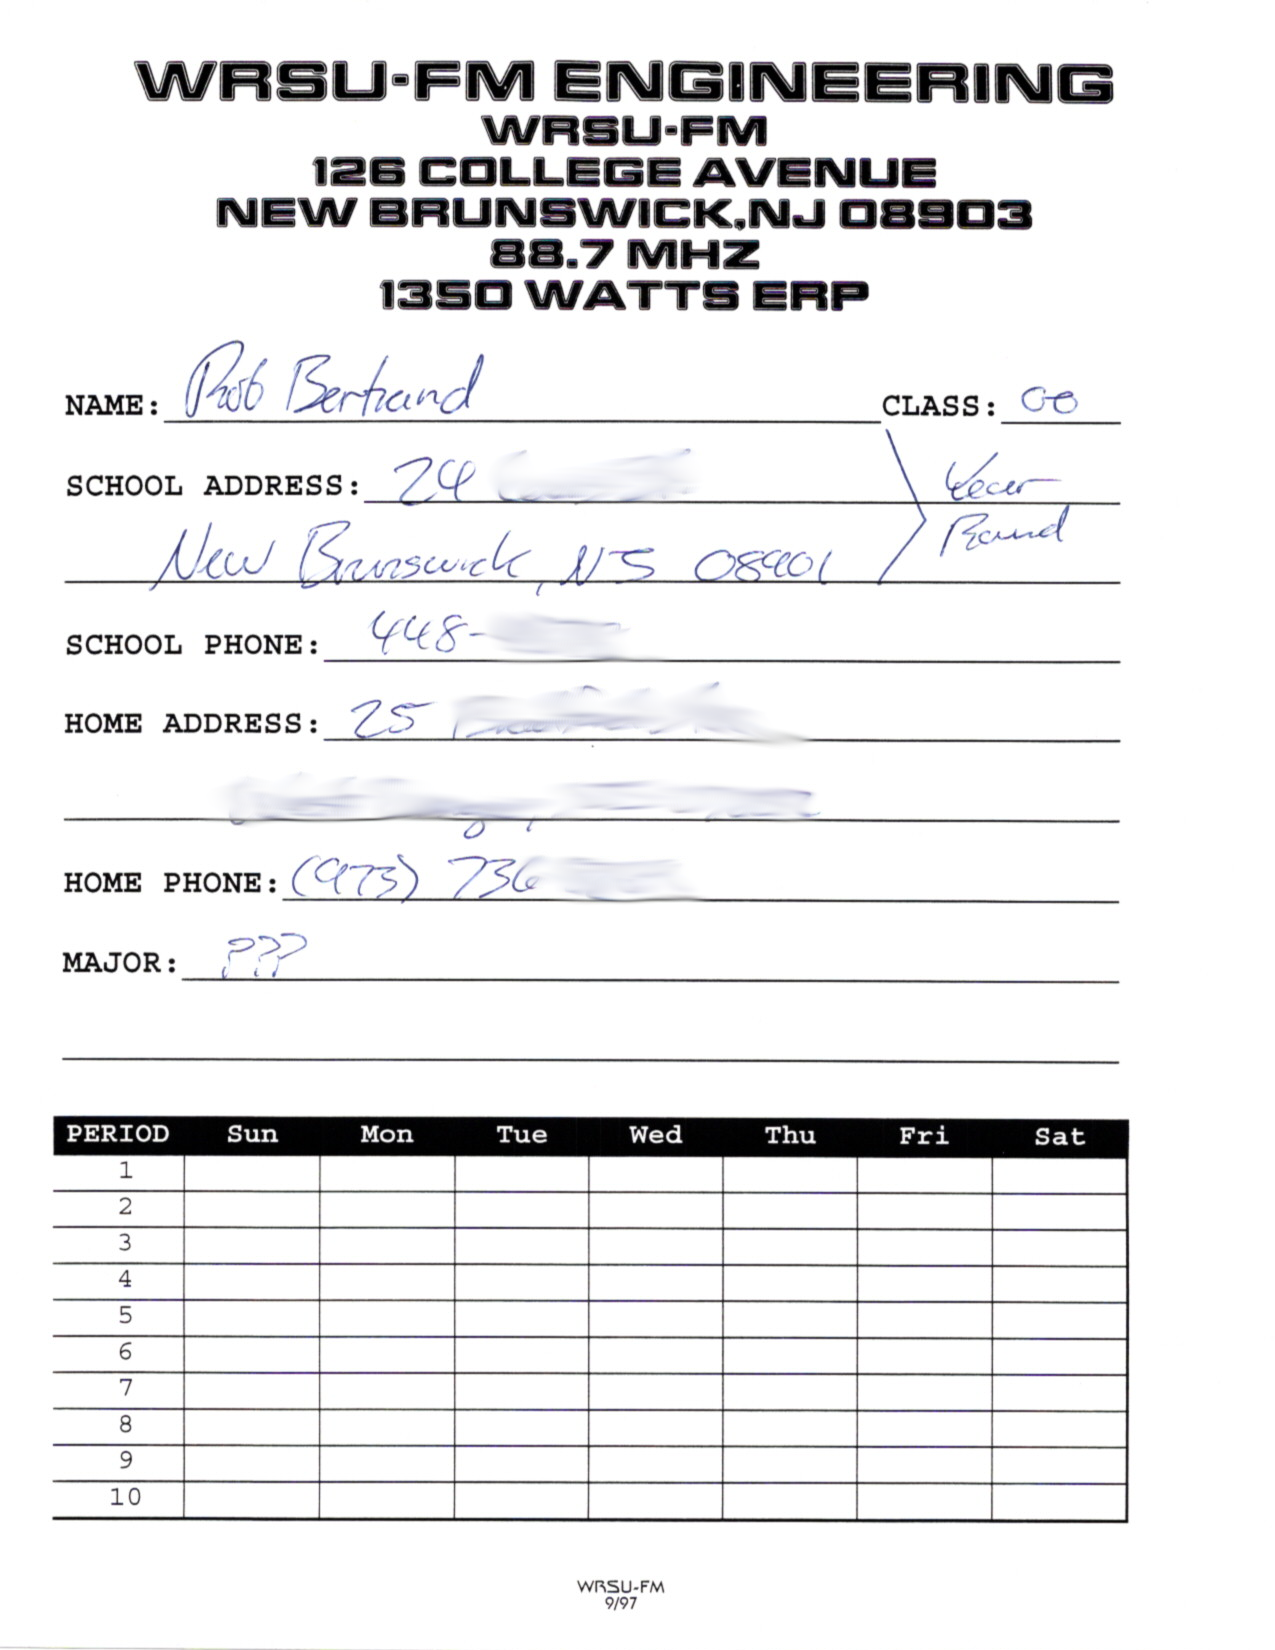 WRSU-FM ENGINEERING
WRSU-FM
126 COLLEGE AVENUE
NEW BRUNSWICK,NJ 08903
88.7 MHZ
1350 WATTS ERP
NAME: Rob Bertrand CLASS: 00
SCHOOL ADDRESS: 24 Year
New Brunswick, NJ 08901 Round
SCHOOL PHONE: 448-
HOME ADDRESS: 25
HOME PHONE: (973) 736
MAJOR: ???
PERIOD Sun Mon Tue Wed Thu Fri Sat
1
2
3
4
5
6
7
8
9
10
WRSU-FM
9/97